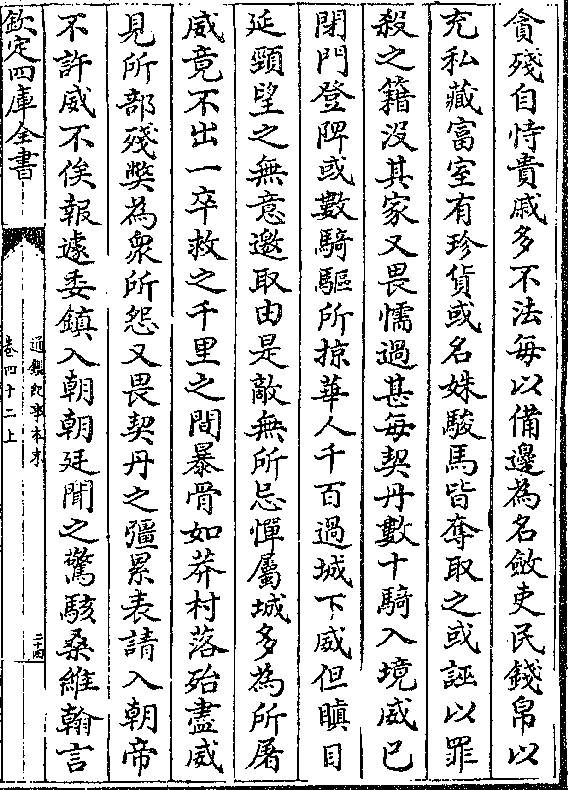 貪殘自恃貴戚多不法每以備邊為名斂吏民錢帛以
充私藏富室有珍貨或名姝駿馬皆奪取之或誣以罪
殺之籍没其家又畏懦過甚每契丹數十騎入境威已
閉門登陴或數騎驅所掠華人千百過城下威但瞋目
延頸望之無意邀取由是敵無所忌憚屬城多為所屠
威竟不出一卒救之千里之間暴骨如莽村落殆盡威
見所部殘弊為衆所怨又畏契丹之彊累表請入朝帝
不許威不俟報遽委鎮入朝朝廷聞之驚駭桑維翰言
欽定四庫全書
通鑑紀事本末
卷四十二上
二十四